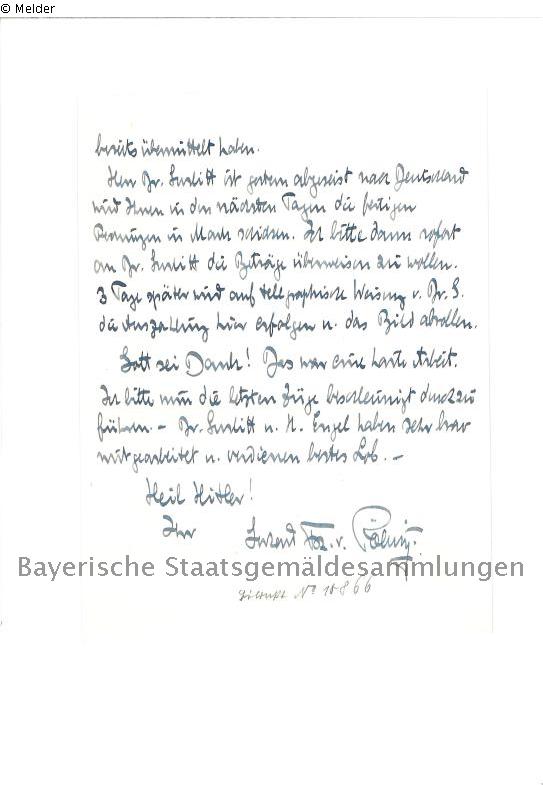 © Melder
bereits übermittelt haben.
Herr Dr. Gurlitt ist gestern abgereist nach Deutschland
wird Ihnen in den nächsten Tagen die fertigen
Rechnungen in Mark schicken. Ich bitte dann sofort
an Dr. Gurlitt die Beträge überweisen zu wollen.
3 Tage später wird auf telegraphische Weisung v. Dr. G.
die Auszahlung hier erfolgen u. das Bild abrollen.
Gott sei Dank! Das war eine harte Arbeit.
Ich bitte nun die letzten Züge beschleunigt durchzu
führen. – Dr. Gurlitt u. H. Engel haben sehr brav
mitgearbeitet u. verdienen bestes Lob. –
Heil Hitler!
Ihr
Bayerische Staatsgemäldesammlungen